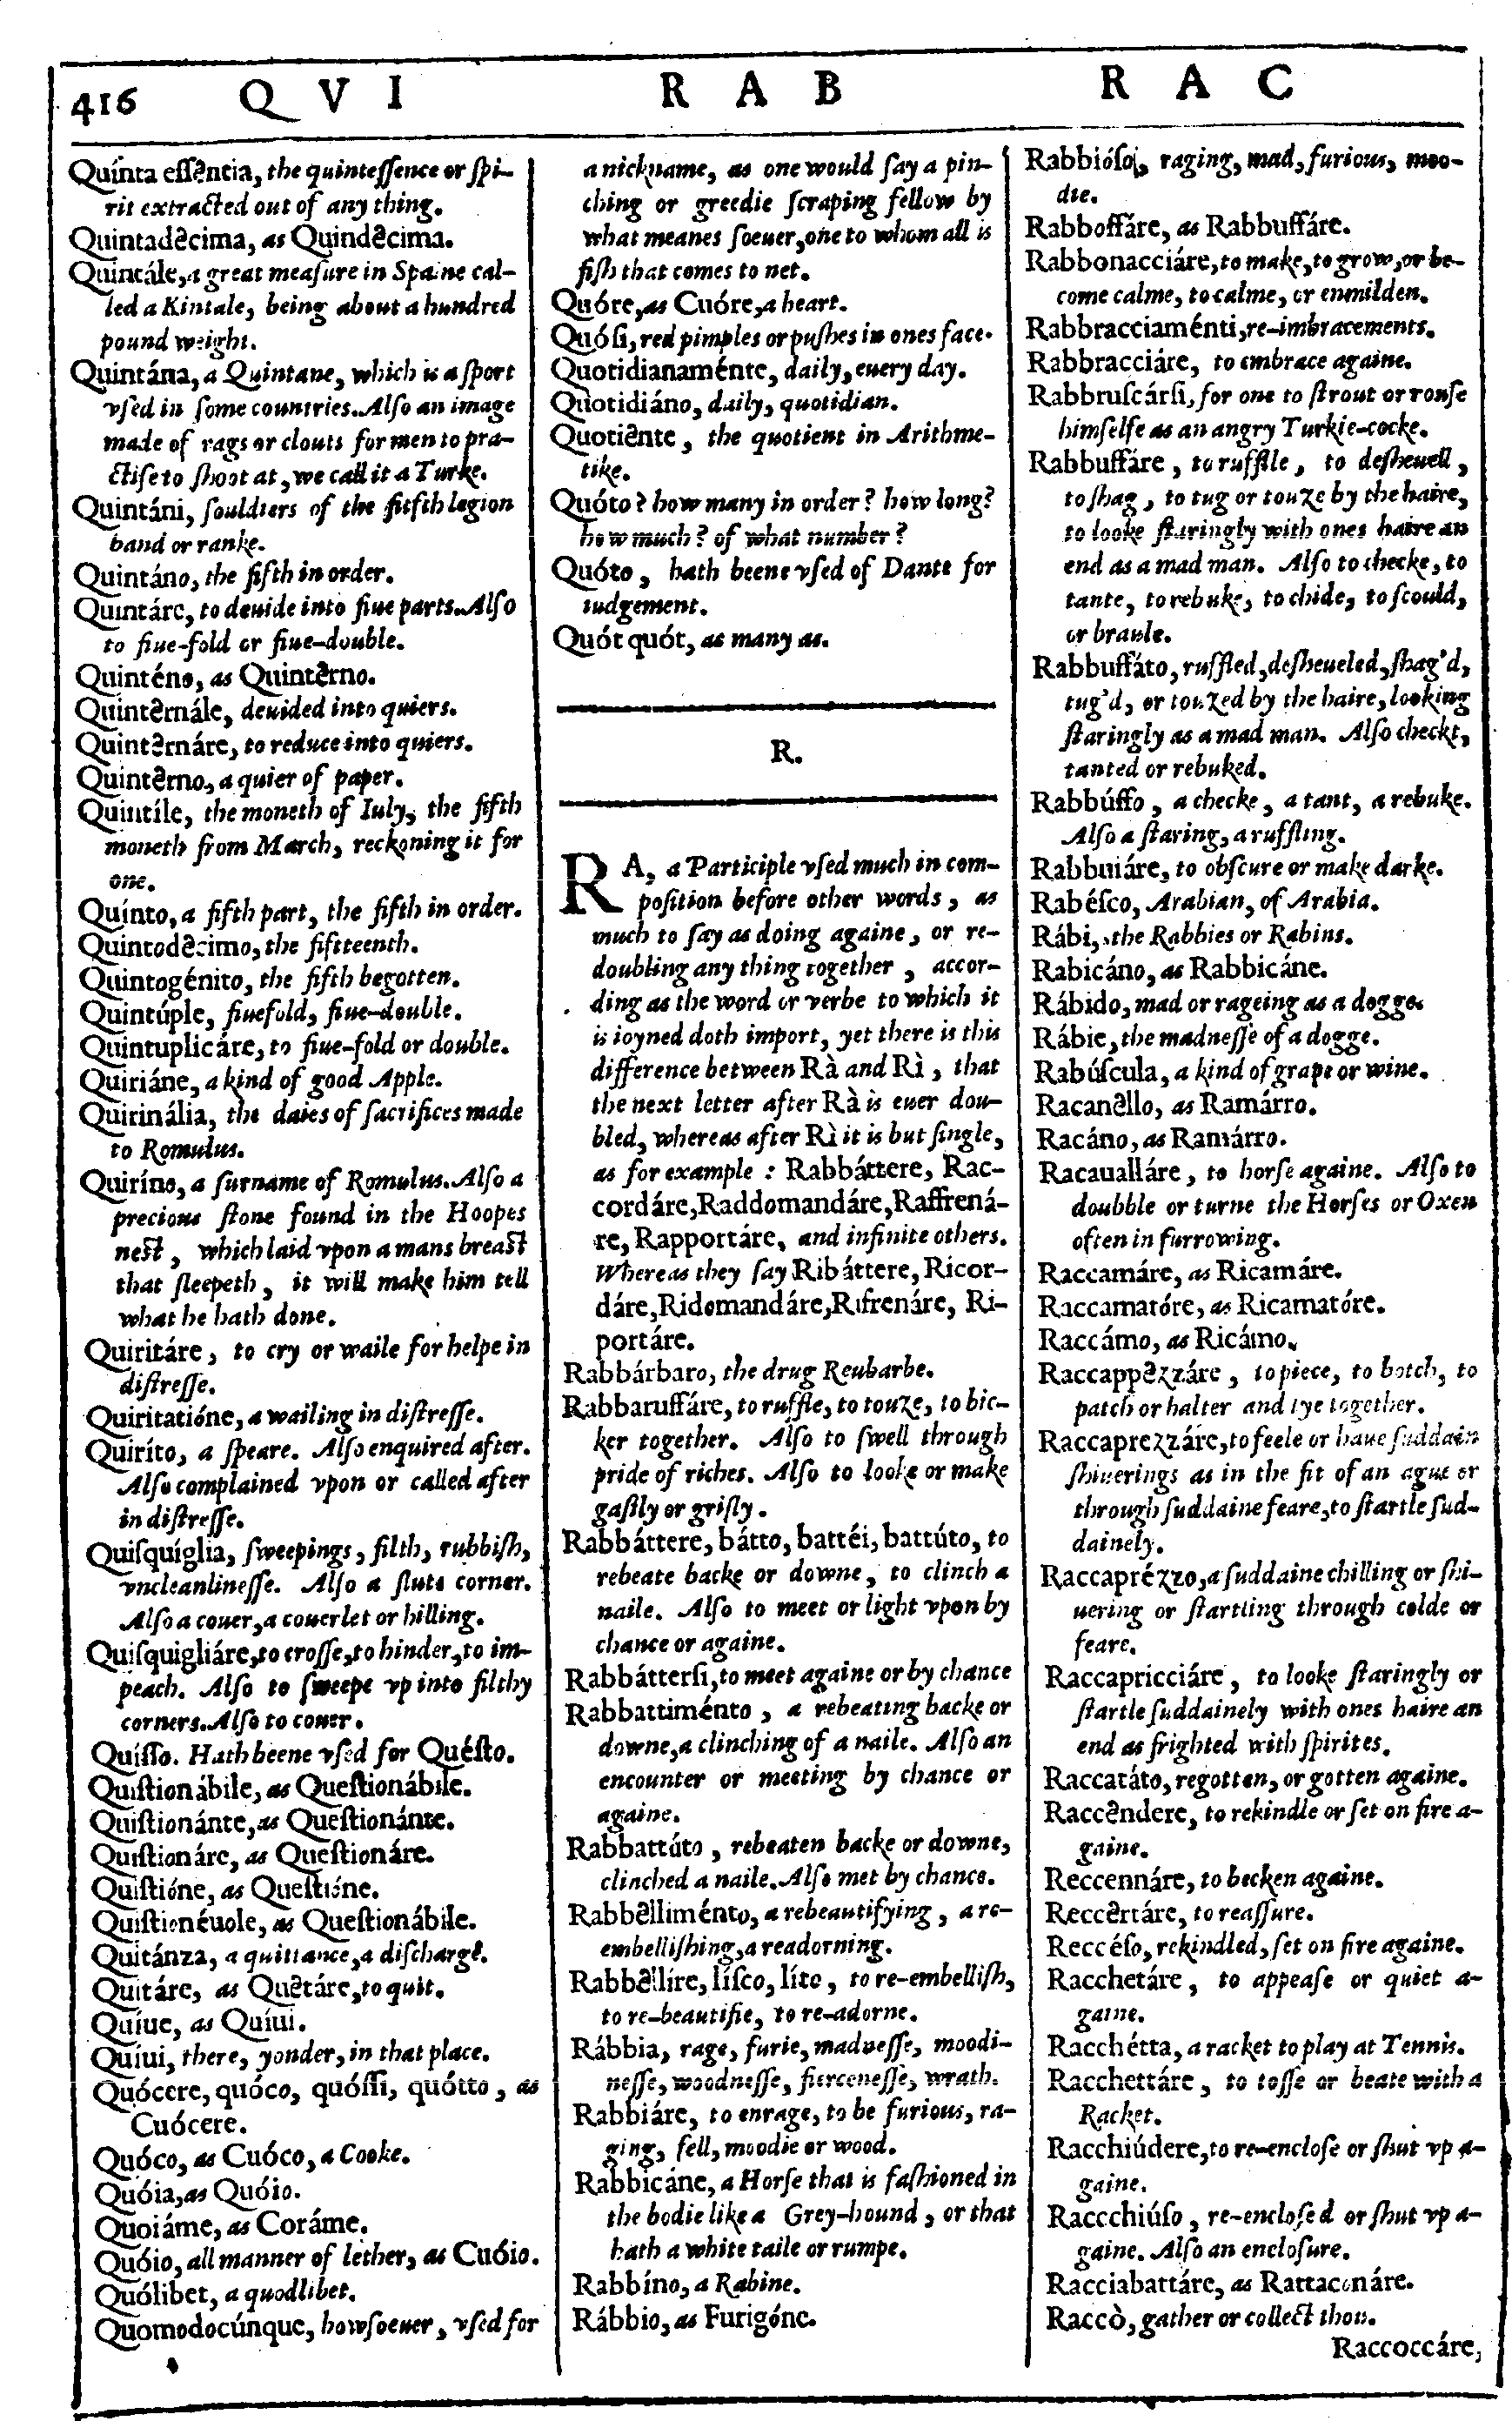 416 QVI RAB RAC
Quínta essẽntia, the quintessence or spi-
rit extracted out of any thing.
Quintadẽcima, as Quindẽcima.
Quintále, a great measure in Spaine cal-
led a Kintale, being about a hundred
pound weight.
Quintána, a Quintane, which is a sport
vsed in some countries. Also an image
made of rags or clouts for men to pra-
ctise to shoot at, we call it a Turke.
Quintáni, souldiers of the fifth legion
band or ranke.
Quintáno, the fifth in order.
Quintáre, to deuide into fiue parts. Also
to fiue-fold or fiue-double.
Quinténo, as Quintẽrno.
Quintẽrnále, deuided into quiers.
Quintẽrnáre, to reduce into quiers.
Quintẽrno, a quier of paper.
Quintíle, the moneth of Iuly, the fifth
moneth from March, reckoning it for
one.
Quínto, a fifth part, the fifth in order.
Quintodẽcimo, the fifteenth.
Quintogénito, the fifth begotten.
Quintúple, fiuefold, fiue-double.
Quintuplicáre, to fiue-fold or double.
Quiriáne, a kind of good Apple.
Quirinália, the daies of sacrifices made
to Romulus.
Quiríno, a surname of Romulus. Also a
precious stone found in the Hoopes
nest, which laid vpon a mans breast
that sleepeth, it will make him tell
what he hath done.
Quiritáre, to cry or waile for helpe in
distresse.
Quiritatióne, a wailing in distresse.
Quiríto, a speare. Also enquired after.
Also complained vpon or called after
in distresse.
Quisquíglia, sweepings, filth, rubbish,
vncleanlinesse. Also a sluts corner.
Also a couer, a couerlet or hilling.
Quisquigliáre, to crosse, to hinder, to im-
peach. Also to sweepe vp into filthy
corners. Also to couer.
Quísso. Hath beene vsed for Quésto.
Quistionábile, as Questionábile.
Quistionánte, as Questionánte.
Quistionáre, as Questionáre.
Quistióne, as Questióne.
Quistionéuole, as Questionábile.
Quitánza, a quittance, a discharge.
Quitáre, as Quẽtáre, to quit.
Quíue, as Quíui.
Quíui, there, yonder, in that place.
Quócere, quóco, quóssi, quótto, as
Cuócere.
Quóco, as Cuóco, a Cooke.
Quóia, as Quóio.
Quoiáme, as Coráme.
Quóio, all manner of lether, as Cuóio.
Quólibet, a quodlibet.
Quomodocúnque, howsoeuer, vsed for
a nickname, as one would say a pin-
ching or greedie scraping fellow by
what meanes soeuer, one to whom all is
fish that comes to net.
Quóre, as Cuóre, a heart.
Quósi, red pimples or pushes in ones face.
Quotidianaménte, daily, euery day.
Quotidiáno, daily, quotidian.
Quotiẽnte, the quotient in Arithme-
tike.
Quóto? how many in order? how long?
how much? of what number?
Quóto, hath beene vsed of Dante for
iudgement.
Quót quót, as many as.
R.
RA, a Participle vsed much in com-
position before other words, as
much to say as doing againe, or re-
doubling any thing together, accor-
ding as the word or verbe to which it
is ioyned doth import, yet there is this
difference between Rà and Rì, that
the next letter after Rà is euer dou-
bled, whereas after Rì it is but single,
as for example: Rabbáttere, Rac-
cordáre, Raddomandáre, Raffrená-
re, Rapportáre, and infinite others.
Whereas they say Ribáttere, Ricor-
dáre, Ridomandáre, Rifrenáre, Ri-
portáre.
Rabbárbaro, the drug Reubarbe.
Rabbaruffáre, to ruffle, to touze, to bic-
ker together. Also to swell through
pride of riches. Also to looke or make
gastly or grisly.
Rabbáttere, bátto, battéi, battúto, to
rebeate backe or downe, to clinch a
naile. Also to meet or light vpon by
chance or againe.
Rabbáttersi, to meet againe or by chance
Rabbattiménto, a rebeating backe or
downe, a clinching of a naile. Also an
encounter or meeting by chance or
againe.
Rabbattúto, rebeaten backe or downe,
clinched a naile. Also met by chance.
Rabbẽlliménto, a rebeautifying, a re-
embellishing, a readorning.
Rabbẽllíre, lísco, líto, to re-embellish,
to re-beautifie, to re-adorne.
Rábbia, rage, furie, madnesse, moodi-
nesse, woodnesse, fiercenesse, wrath.
Rabbiáre, to enrage, to be furious, ra-
ging, fell, moodie or wood.
Rabbicáne, a Horse that is fashioned in
the bodie like a Grey-hound, or that
hath a white taile or rumpe.
Rabbíno, a Rabine.
Rábbio, as Furigóne.
Rabbióso, raging, mad, furious, moo-
die.
Rabboffáre, as Rabbuffáre.
Rabbonacciáre, to make, to grow, or be-
come calme, to calme, or enmilden.
Rabbracciaménti, re-imbracements.
Rabbracciáre, to embrace againe.
Rabbruscársi, for one to strout or rouse
himselfe as an angry Turkie-cocke.
Rabbuffáre, to ruffle, to desheuell,
to shag, to tug or touze by the haire,
to looke staringly with ones haire an
end as a mad man. Also to checke, to
tante, to rebuke, to chide, to scould,
or braule.
Rabbuffáto, ruffled, desheueled, shag'd,
tug'd, or touzed by the haire, looking
staringly as a mad man. Also checkt,
tanted or rebuked.
Rabbúffo, a checke, a tant, a rebuke.
Also a staring, a ruffling.
Rabbuiáre, to obscure or make darke.
Rabésco, Arabian, of Arabia.
Rábi, the Rabbies or Rabins.
Rabicáno, as Rabbicáne.
Rábido, mad or rageing as a dogge.
Rábie, the madnesse of a dogge.
Rabúscula, a kind of grape or wine.
Racanẽllo, as Ramárro.
Racáno, as Ramárro.
Racauálláre, to horse againe. Also to
doubble or turne the Horses or Oxen
often in furrowing.
Raccamáre, as Ricamáre.
Raccamatóre, as Ricamatóre.
Raccámo, as Ricámo.
Raccappẽzzáre, to piece, to botch, to
patch or halter and tye together.
Raccaprezzáre, to feele or haue suddain
shiuerings as in the fit of an ague or
through suddaine feare, to startle sud-
dainely.
Raccaprézzo, a suddaine chilling or shi-
uering or startling through colde or
feare.
Raccapricciáre, to looke staringly or
startle suddainely with ones haire an
end as frighted with spirites.
Raccatáto, regotten, or gotten againe.
Raccẽndere, to rekindle or set on fire a-
gaine.
Reccennáre, to becken againe.
Reccẽrtáre, to reassure.
Reccéso, rekindled, set on fire againe.
Racchetáre, to appease or quiet a-
gaine.
Racchétta, a racket to play at Tennis.
Racchettáre, to tosse or beate with a
Racket.
Racchiúdere, to re-enclose or shut vp a-
gaine.
Raccchiúso, re-enclosed or shut vp a-
gaine. Also an enclosure.
Racciabattáre, as Rattaconáre.
Raccò, gather or collect thou.
Raccoccáre,